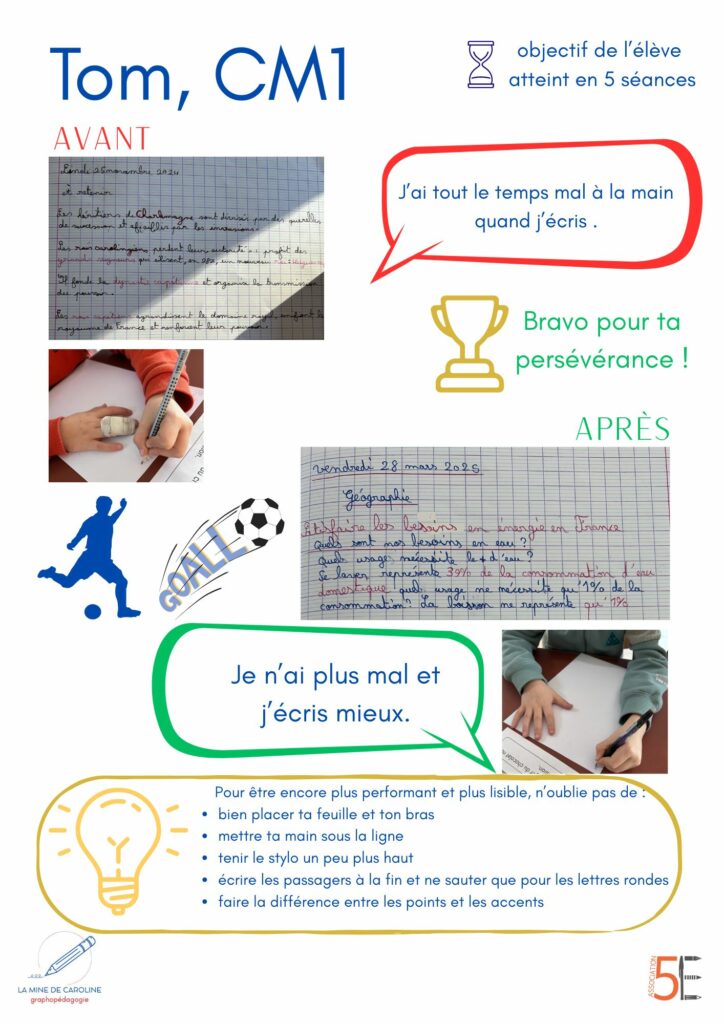 Tom, CM1
objectif de l'élève
atteint en 5 séances
AVANT
Lundi 25 novembre 2024
À retenir
Les héritiers de Charlemagne sont divisés par des querelles
de succession et affaiblis par les invasions.
Les rois carolingiens perdent leur autorité au profit des
grands seigneurs qui élisent, en 987, un nouveau roi:
Il fonde la dynastie capétienne et organise la transmission
du pouvoir.
Les rois capétiens agrandissent le domaine royal, unifient le
royaume de France et renforcent leur pouvoir.
J'ai tout le temps mal à la main
quand j'écris .
Bravo pour ta
persévérance !
APRÈS
Vendredi 28 mars 2025
Géographie
Satisfaire les besoins en énergie en France
Quels sont nos besoins en eau ?
Quels usages nécessite le + d'eau ?
Se laver représente 39% de la consommation d'eau
domestique quel usage ne nécessite qu'1% de la
consommation? La boisson ne représente qu'1%
GOALL
Je n'ai plus mal et
j'écris mieux.
Pour être encore plus performant et plus lisible, n'oublie pas de :
• bien placer ta feuille et ton bras
• mettre ta main sous la ligne
• tenir le stylo un peu plus haut
• écrire les passagers à la fin et ne sauter que pour les lettres rondes
• faire la différence entre les points et les accents
LA MINE DE CAROLINE
graphopédagogie
ASSOCIATION
5E